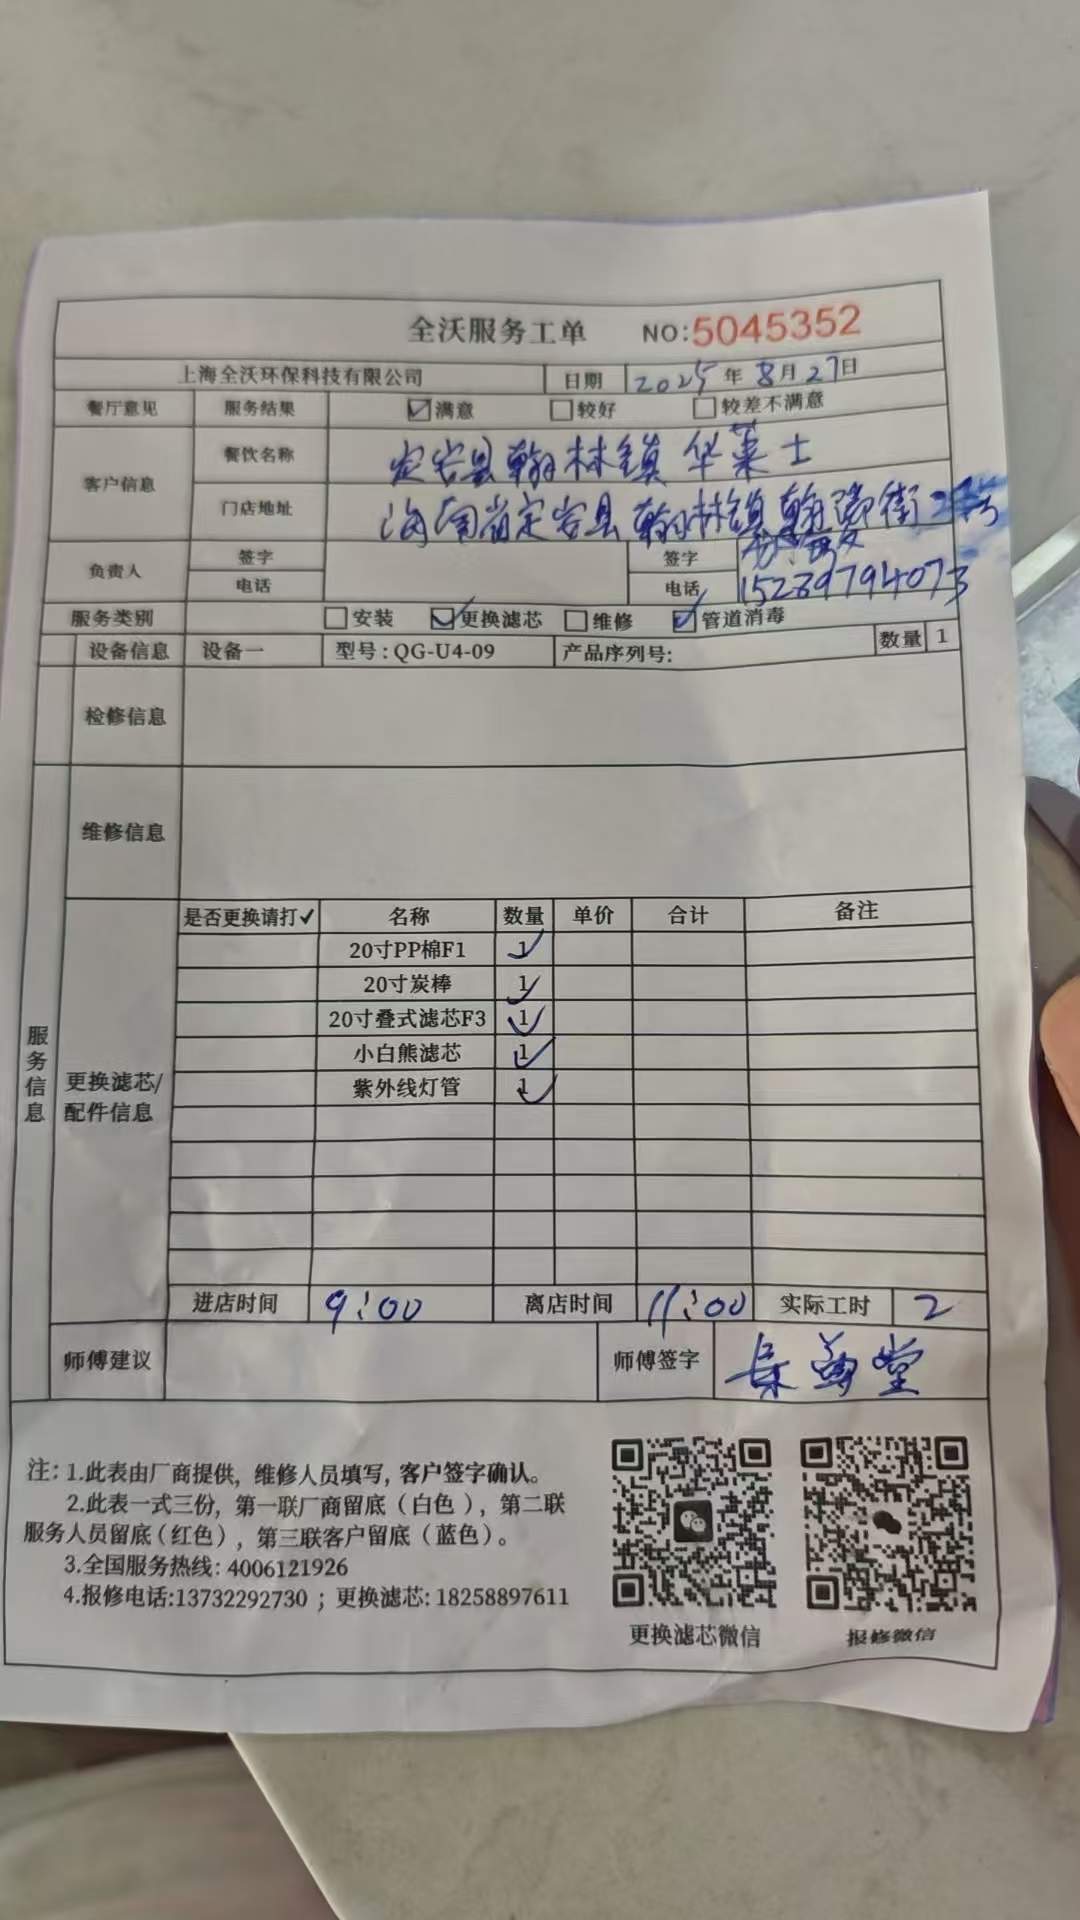 全沃服务工单 NO:5045352
上海全沃环保科技有限公司 日期 2025年8月27日
餐厅意见 服务结果 ☑满意 □较好 □较差不满意
客户信息 餐饮名称 定安县翰林镇华莱士
门店地址 海南省定安县翰林镇翰 街
负责人 签字 签字
电话 电话 15289794073
服务类别 □安装 ☑更换滤芯 □维修 ☑管道消毒
设备信息 设备一 型号:QG-U4-09 产品序列号: 数量 1
检修信息
维修信息
服务信息
更换滤芯/配件信息
是否更换请打✓ 名称 数量 单价 合计 备注
20寸PP棉F1 1 ✓
20寸炭棒 1 ✓
20寸叠式滤芯F3 1 ✓
小白熊滤芯 1 ✓
紫外线灯管 1 ✓
进店时间 9:00 离店时间 11:00 实际工时 2
师傅建议 师傅签字 堂
注: 1.此表由厂商提供, 维修人员填写, 客户签字确认。
2.此表一式三份, 第一联厂商留底(白色), 第二联
服务人员留底(红色), 第三联客户留底(蓝色)。
3.全国服务热线: 4006121926
4.报修电话:13732292730 ; 更换滤芯: 18258897611
更换滤芯微信 报修微信